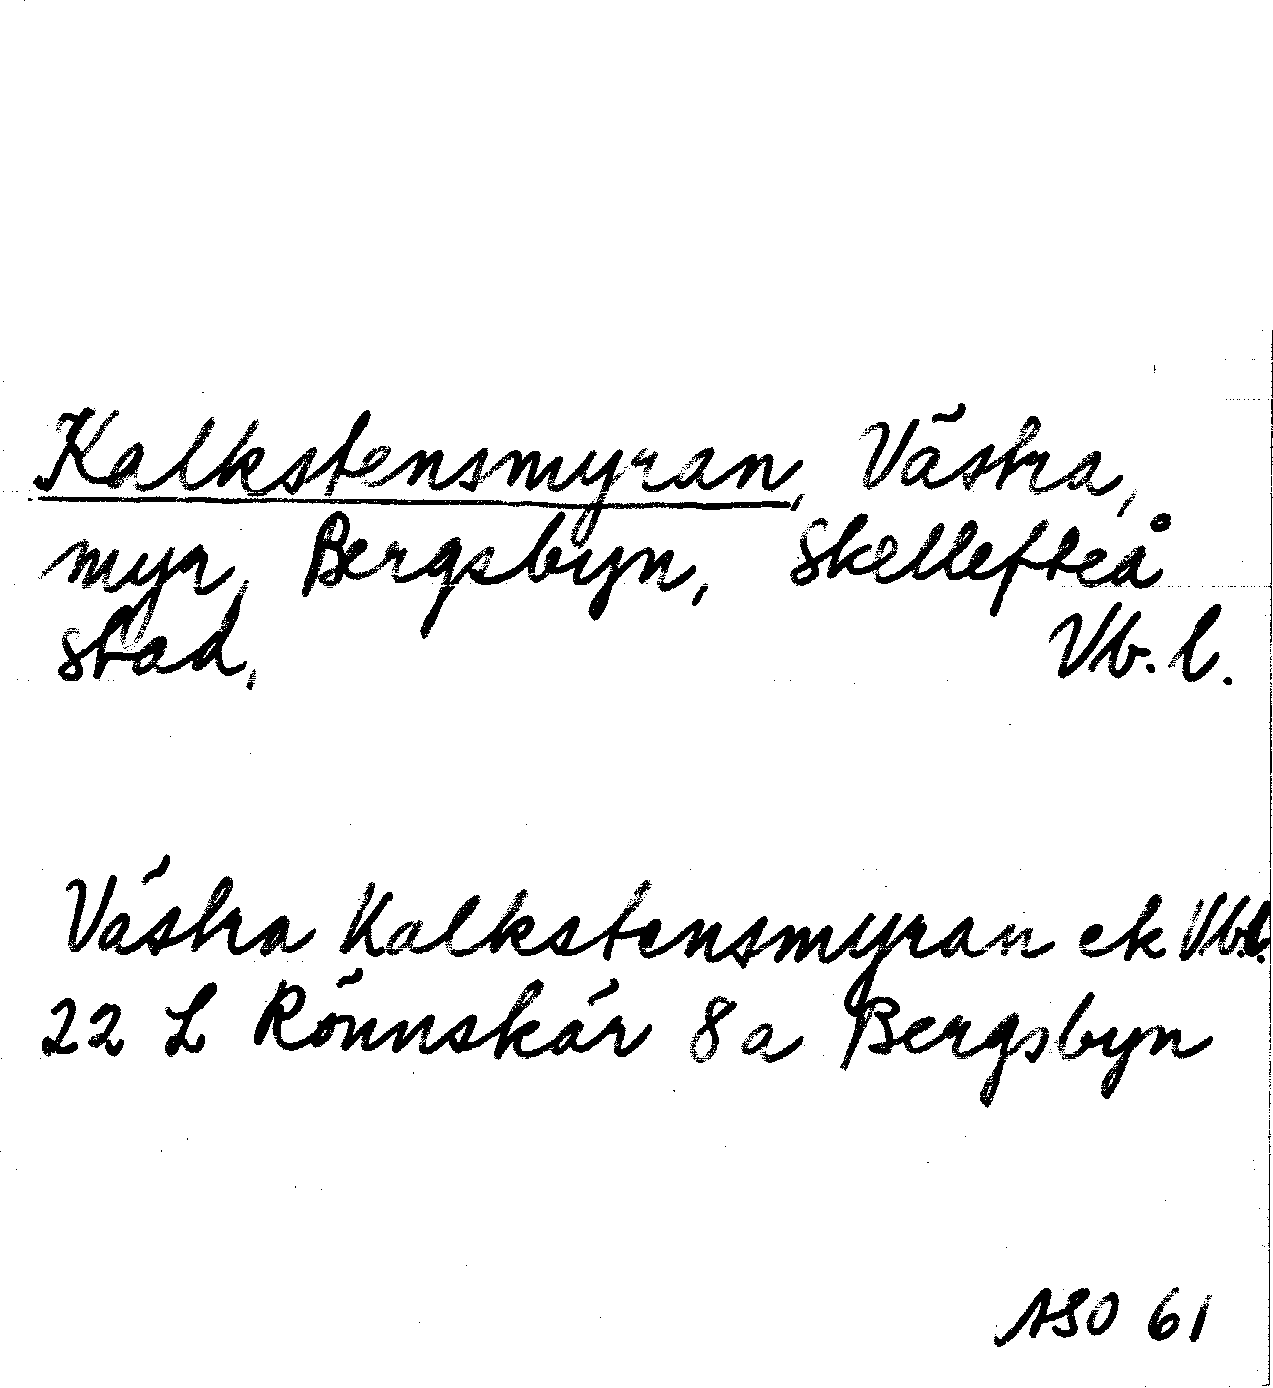 Kalkstensmyran, Västra,
myr, Bergsbyn, Skellefteå
stad, Vb. l.
Västra Kalkstensmyran ek Vb.l.
22 L Rönnskär 8 a Bergsbyn
ASO 61